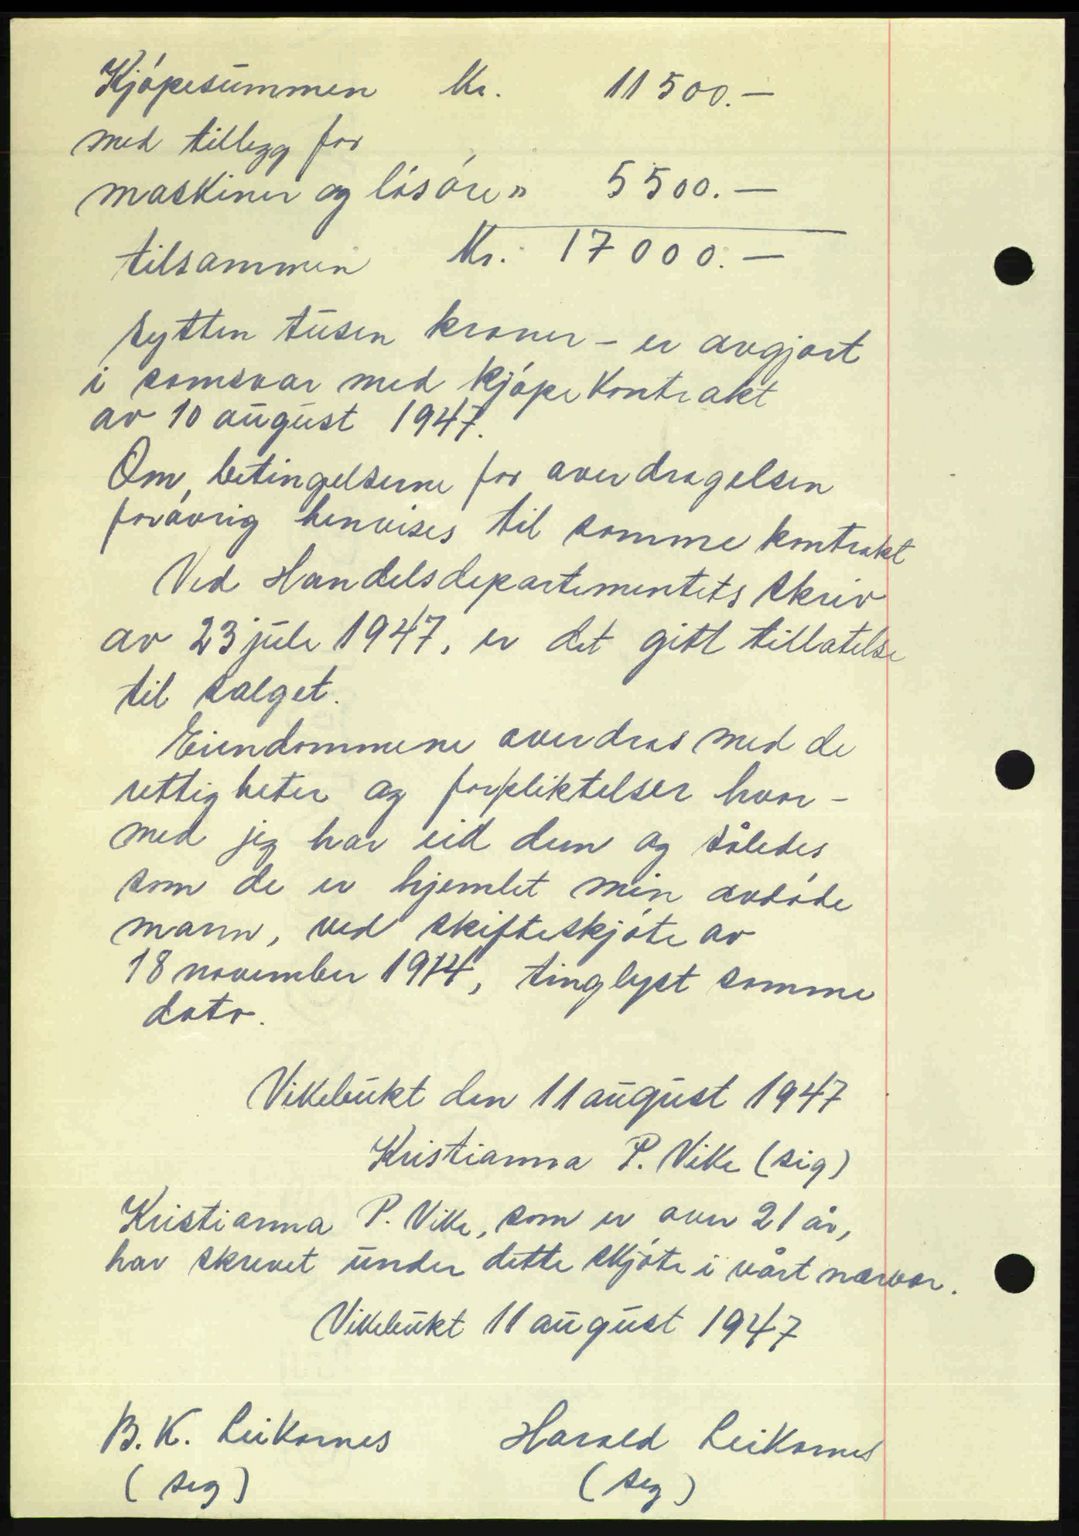 Kjöpesummen Kr. 11500.—
med tillegg for
maskiner og lösöre " 5500.—
tilsammen Kr. 17000.—
sytten tusen kroner – er avgjort
i samsvar med kjöpekontrakt
av 10 august 1947.
Om betingelserne for overdragelsen
forövrig henvises til samme kontrakt
Ved Handelsdepartementets skriv
av 23 juli 1947, er det gitt tillatelse
til salget.
Eiendommene overdras med de
rettigheter og forpliktelser hvor-
med jeg har eid dem og således
som de er hjemlet min avdöde
mann, ved skifteskjöte av
18 november 1914, tinglyst samme
dato.
Vikebukt den 11 august 1947
Kristianna P. Vike (sig)
Kristianna P. Vike, som er over 21 år,
har skrevet under dette skjöte i vårt nærvær.
Vikebukt 11 august 1947
B. K. Leikarnes Harald Leikarnes
(sig) (sig)